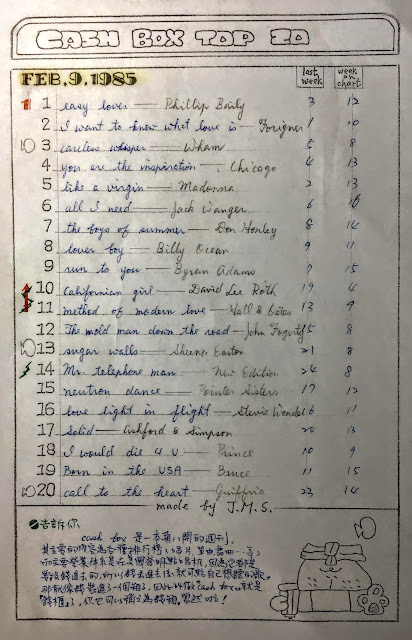 CASH BOX TOP 20
FEB,9,1985
last week
week on chart
1 easy lover — Phillip Baily 3 12
2 I want to know what love is — Forigner 1 10
3 careless whisper — Wham 5 8
4 you are the inspiration — Chicago 4 13
5 like a virgin — Madonna 2 13
6 all I need — Jack Wanger 6
7 the boys of summer — Don Henley 8 14
8 lover boy — Billy Ocean 9 11
9 run to you — Byran Adams 7 15
10 californian girl — David Lee Roth 19 4
11 method of modern love — Hall & Oates 13 9
12 The mold man down the road — John Fogurty 15 8
13 sugar walls — Sheener Easton 21 8
14 Mr. telephone man — New Edition 24 8
15 neutron dance — Pointer Sisters 17 12
16 love light in flight — Stevie Wonder 16 11
17 solid — Ashford & Simpson 20 13
18 I would die 4 U — Prince 10 9
19 Born in the USA — Bruce 11 15
20 call to the heart — Guiffria 23 14
made by J.M.S.
告訴你
cash box 是一本第八開的週刊,